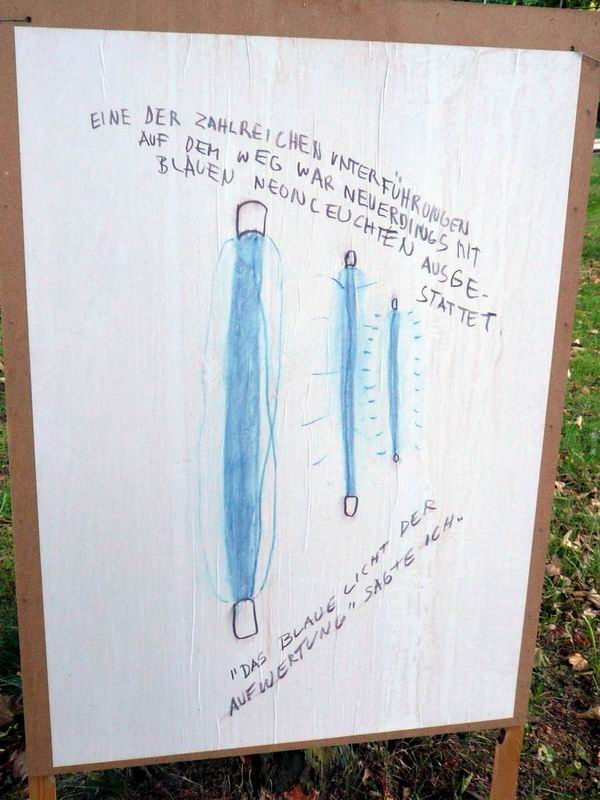 EINE DER ZAHLREICHEN UNTERFÜHRUNGEN
AUF DEM WEG WAR NEUERDINGS MIT
BLAUEN NEONLEUCHTEN AUSGE-
STATTET.
"DAS BLAUE LICHT DER
AUFWERTUNG" SAGTE ICH.